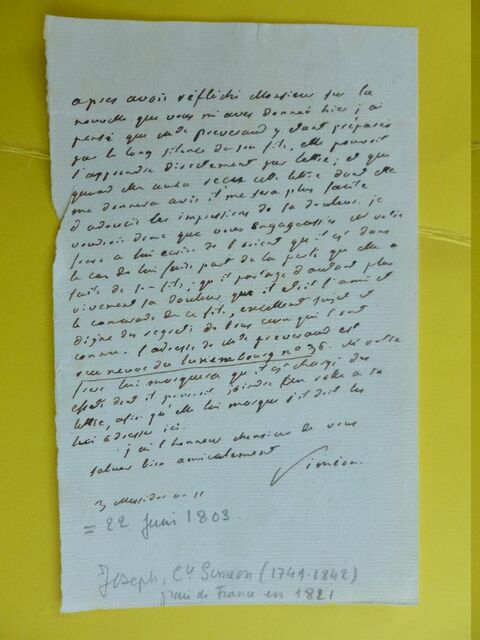 apres avoir réfléchi Monsieur sur la
nouvelle que vous m'avez donnée hier j'ai
pensé que Made Preveraud y etant préparée
par le long silence de son fils, elle pouvoit
l'apprendre directement par lettre; et que
quand elle aura reçu cette lettre dont elle
me donnera avis il me sera plus facile
d'adoucir les impressions de sa douleur. je
voudrois donc que vous engageassiez Mr votre
frere a lui ecrire de l'orient qu'il est dans
le cas de lui faire part de la perte qu'elle a
faite de son fils; qu'il partage d'autant plus
vivement sa douleur que il etoit l'ami et
le camarade de ce fils, excellent sujet et
digne des regrets de tous ceux qui l'ont
connu. l'adresse de Made preveraud est
rue neuve du luxembourg no 36. Mr votre
frere lui marquera qu'il est chargé des
effets dont il pourroit joindre une note a sa
lettre, afin qu'elle lui marque s'il doit les
lui adresser ici.
j'ai l'honneur Monsieur de vous
saluer bien amicalement
Siméon.
3 Messidor an 11
= 22 Juin 1803.
Joseph, Cte Siméon (1749-1842)
pair de France en 1821.